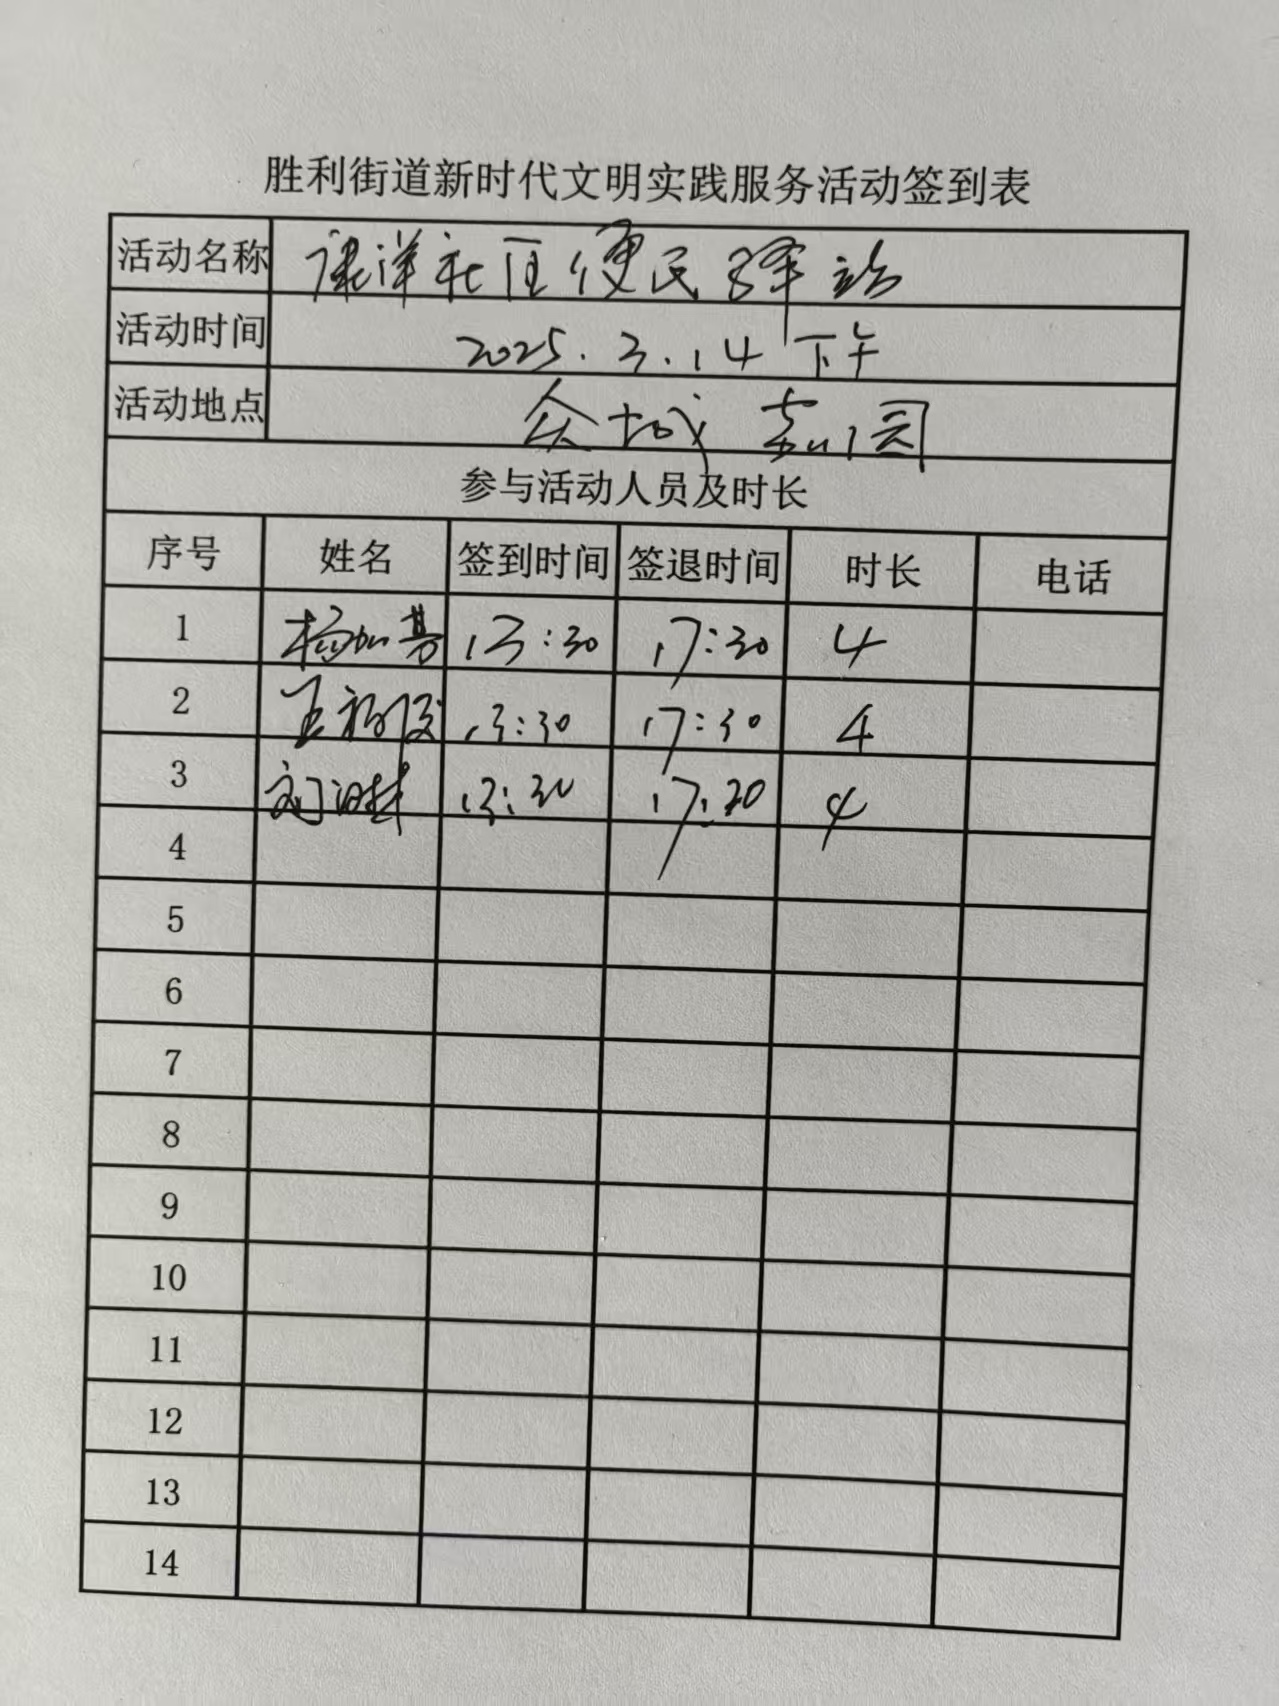 胜利街道新时代文明实践服务活动签到表
活动名称 康洋社区便民驿站
活动时间 2025.3.14 下午
活动地点 众城嘉园
参与活动人员及时长
序号 姓名 签到时间 签退时间 时长 电话
1 13:30 17:30 4
2 13:30 17:30 4
3 13:30 17:30 4
4
5
6
7
8
9
10
11
12
13
14